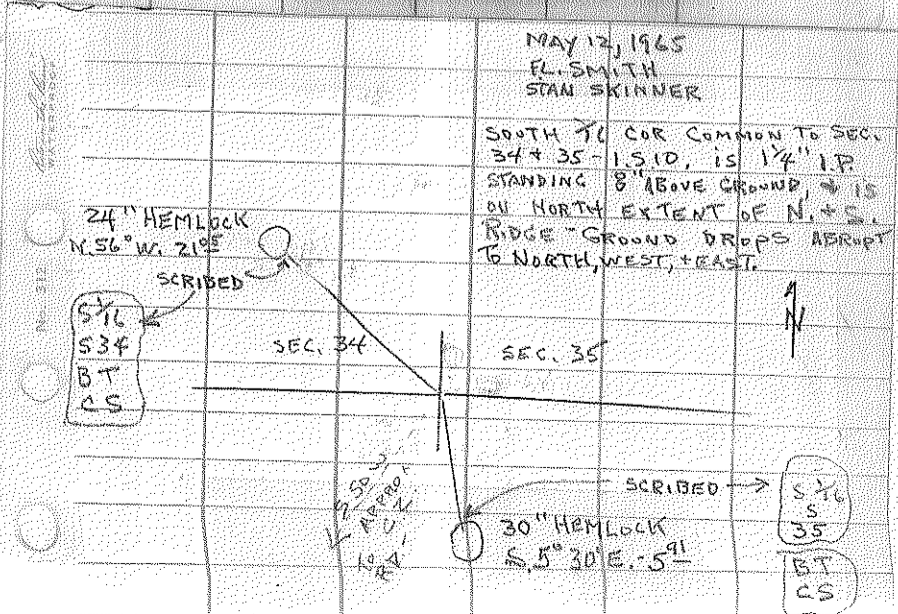 MAY 12, 1965
F.L. SMITH
STAN SKINNER
SOUTH 1/16 COR COMMON TO SEC.
34 + 35 - 1.S 10. is 1 1/4" I.P.
STANDING 8" ABOVE GROUND, + IS
ON NORTH EXTENT OF N. + S.
RIDGE - GROUND DROPS ABRUPT
TO NORTH, WEST, + EAST.
N
24" HEMLOCK
N. 56° W. 21
SCRIBED
S 1/16
S34
BT
CS
SEC. 34
SEC. 35
APPROX
TO
SCRIBED
S 1/16
S
35
BT
CS
30" HEMLOCK
S. 5° 30' E. - 5 91